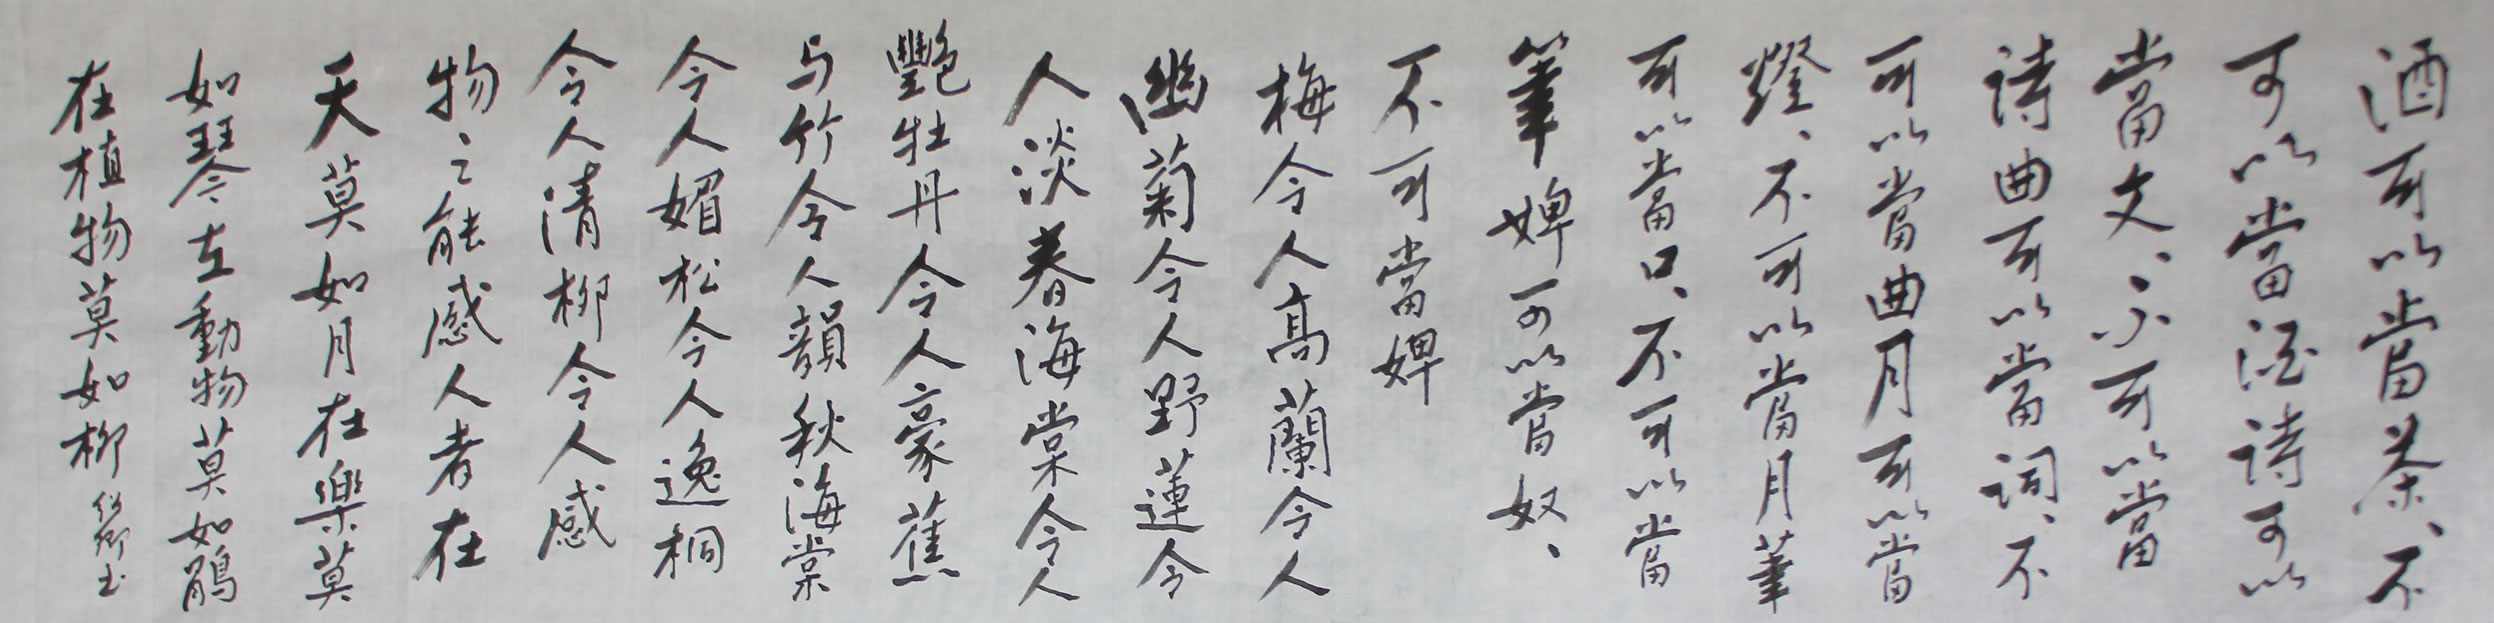 酒可以當茶、不
可以當酒詩可以
當文、不可以當
詩曲可以當詞、不
可以當曲月可以當
燈、不可以當月筆
可以當口、不可以當
筆婢可以當奴、
不可當婢
梅令人高蘭令人
幽菊令人野蓮令
人淡春海棠令人
艷牡丹令人豪蕉
与竹令人韻秋海棠
令人媚松令人逸桐
令人清柳令人感
物之能感人者在
天莫如月在樂莫
如琴在動物莫如鵑
在植物莫如柳